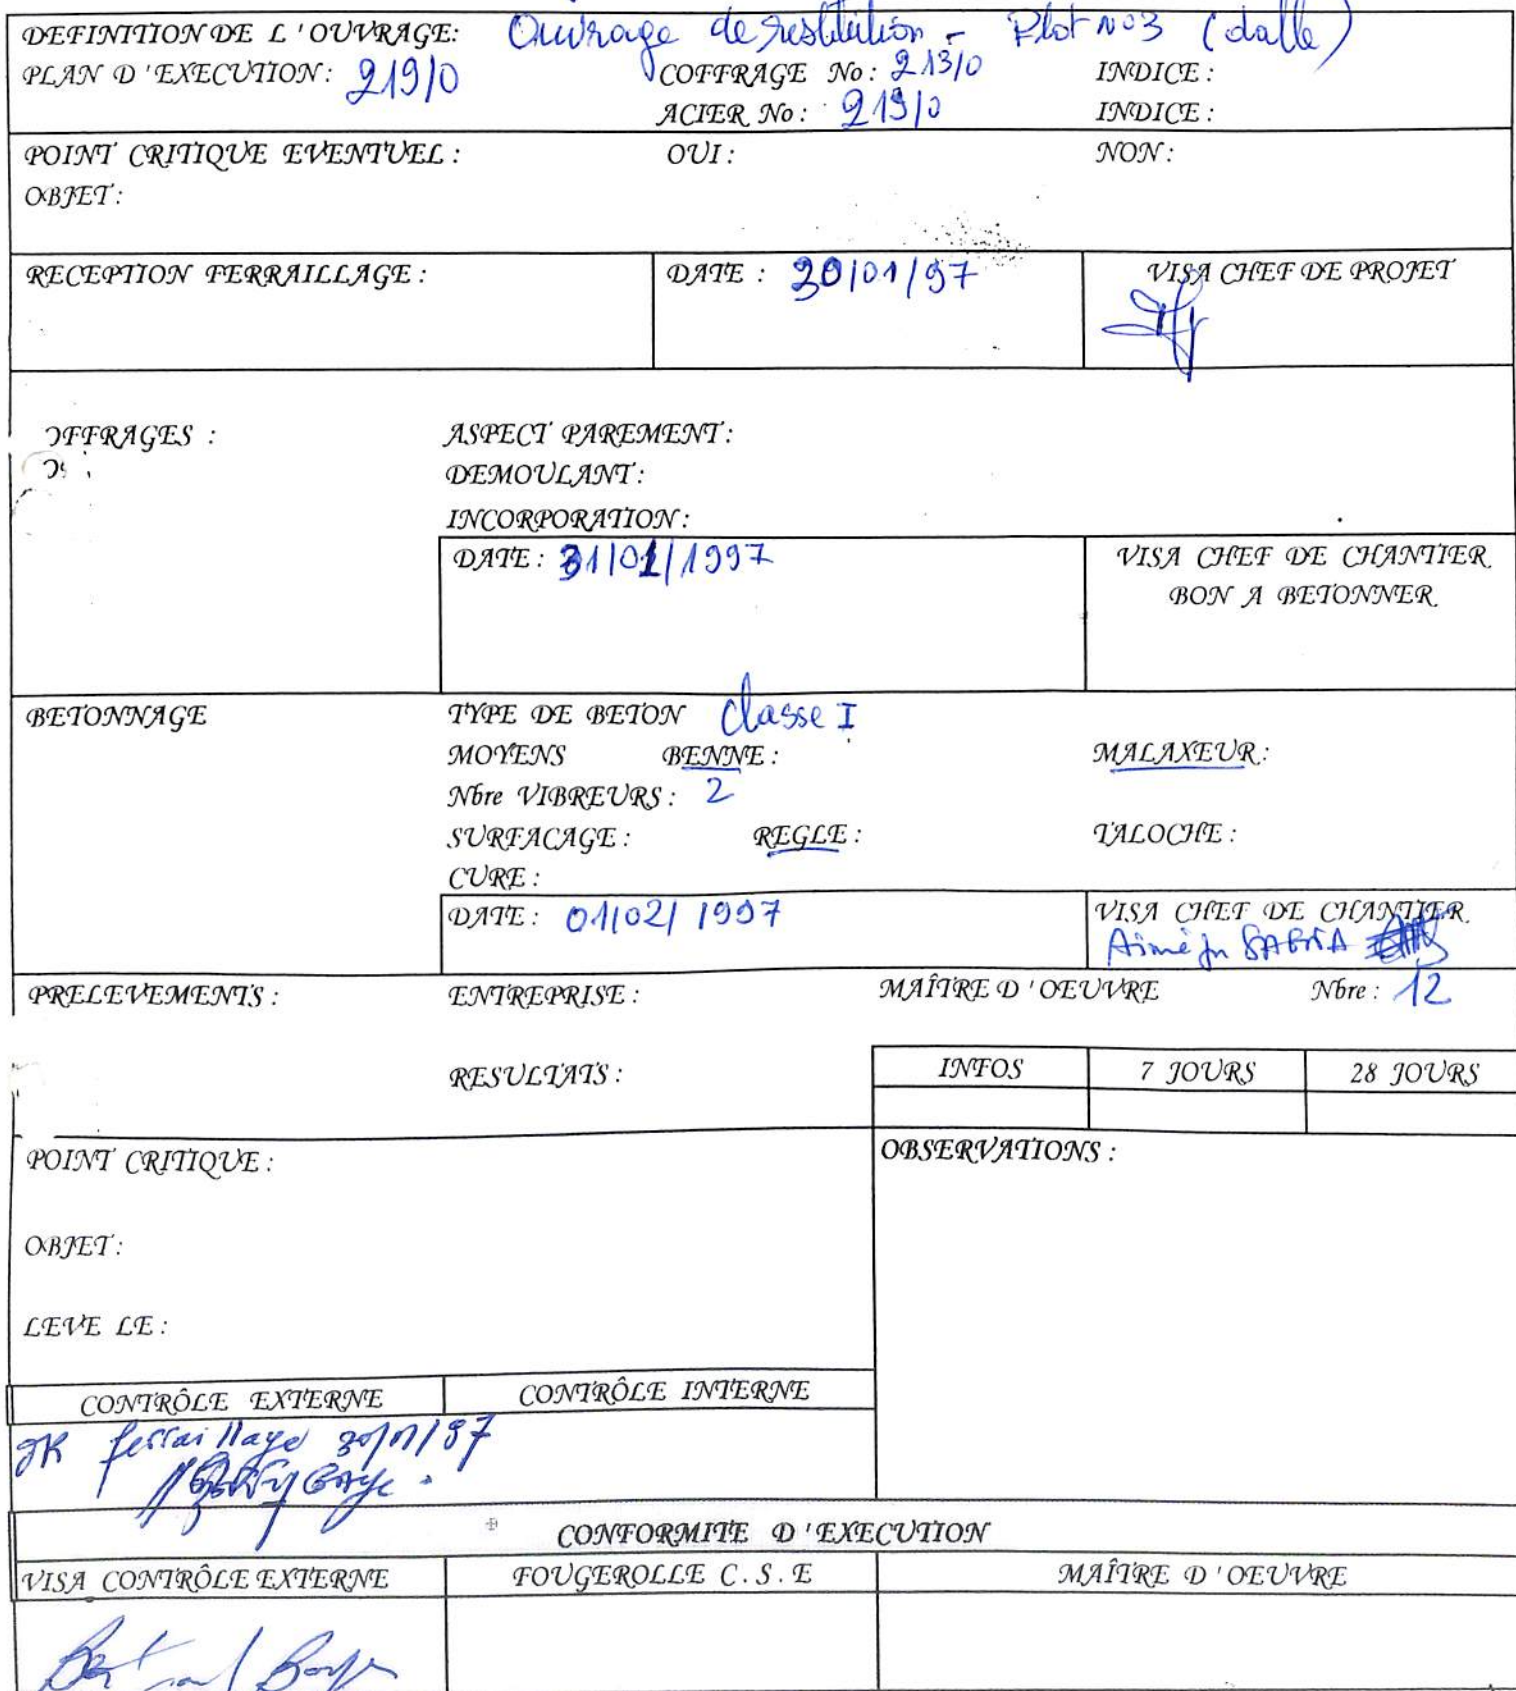 DEFINITION DE L'OUVRAGE: Ouvrage de restitution - Plot No3 (dalle)
PLAN D'EXECUTION: 219/0 COFFRAGE No: 213/0 INDICE:
ACIER No: 219/0 INDICE:
POINT CRITIQUE EVENTUEL: OUI: NON:
OBJET:
RECEPTION FERRAILLAGE: DATE: 30/01/97 VISA CHEF DE PROJET
OFFRAGES: ASPECT PAREMENT:
DEMOULANT:
INCORPORATION:
DATE: 31/01/1997 VISA CHEF DE CHANTIER
BON A BETONNER
BETONNAGE TYPE DE BETON Classe I
MOYENS BENNE: MALAXEUR:
Nbre VIBREURS: 2
SURFACAGE: REGLE: TALOCHE:
CURE:
DATE: 01/02/1997 VISA CHEF DE CHANTIER
Aimé
PRELEVEMENTS: ENTREPRISE: MAÎTRE D'OEUVRE Nbre: 12
RESULTATS: INFOS 7 JOURS 28 JOURS
POINT CRITIQUE: OBSERVATIONS:
OBJET:
LEVE LE:
CONTRÔLE EXTERNE CONTRÔLE INTERNE
ferraillage 30/01/97
CONFORMITE D'EXECUTION
VISA CONTRÔLE EXTERNE FOUGEROLLE C.S.E MAÎTRE D'OEUVRE